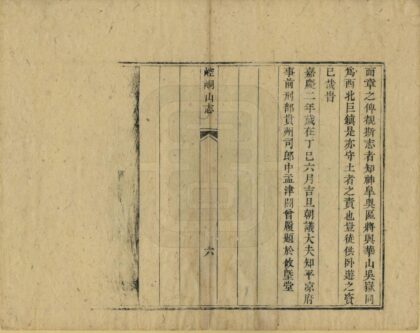 而章之俾覩斯志者知神臯奥區將與華山吳嶽同
爲西北巨鎮是亦守土者之責也豈徒供卧遊之資
已哉旹
嘉慶二年歲在丁巳六月吉旦朝議大夫知平凉府
事前刑部貴州司郎中孟津閻曾履題於敬堂
崆峒山志
六